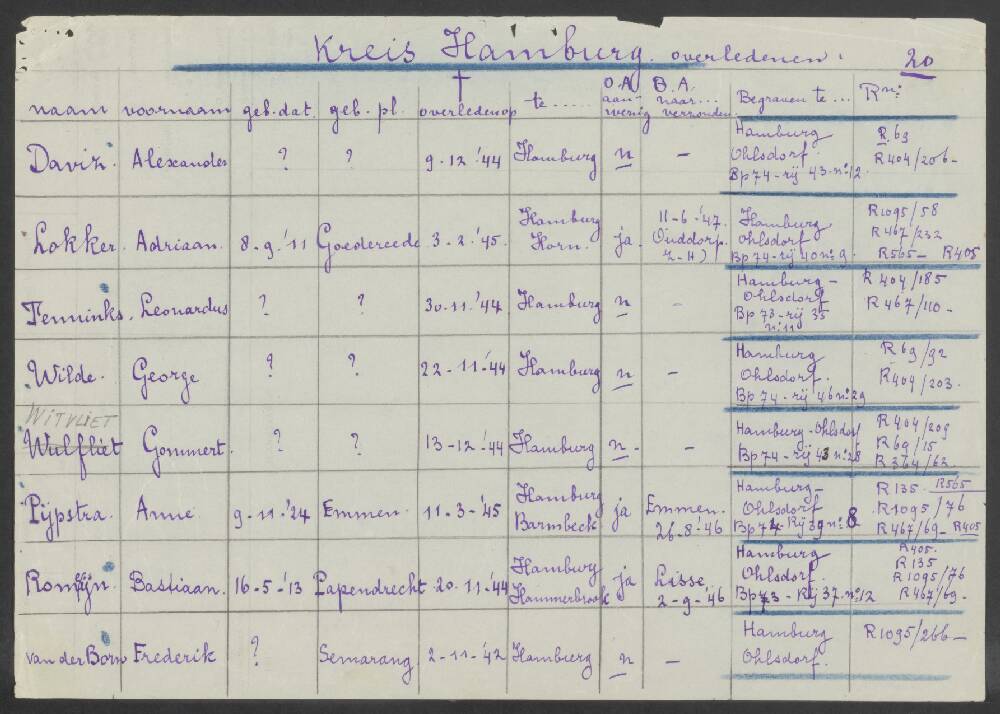 Kreis Hamburg. overledenen. 20
naam voornaam geb. dat. geb. pl. † overleden op te ..... O.A. aanwezig B.A. naar... verzonden. Begraven te ... Rn:
Daviz. Alexander ? ? 9-12-'44 Hamburg n - Hamburg Ohlsdorf. Bp 74 - rij 43-n:12. R.69 R404/206-
Lokker. Adriaan. 8-9-'11 Goedereede 3-2-'45. Hamburg Horn. ja 11-6-'47. Ouddorp. Z-H) Hamburg Ohlsdorf Bp 74-rij 40 n:9. R1095/58 R467/232 R565- R405
Tenninks. Leonardus ? ? 30-11-'44 Hamburg n - Hamburg - Ohlsdorf Bp 73-rij 35 n:11 R 404/185 R 467/110-
Wilde. George ? ? 22-11-'44 Hamburg n - Hamburg Ohlsdorf. Bp 74 - rij 46 n:29 R69/92 R404/203.
WITVLIET
Wulfliet Gommert. ? ? 13-12-'44 Hamburg n. - Hamburg-Ohlsdorf Bp 74-rij 43 n:28 R404/209 R69/15 R364/62
Pijpstra. Anne 9-11-'24 Emmen. 11-3-'45 Hamburg Barmbeck ja Emmen. 26-8-'46 Hamburg- Ohlsdorf Bp 74-Rij 39 n:8 R135- R565 R1095/76 R467/69- R405
Romijn. Bastiaan. 16-5-'13 Papendrecht 20-11-'44 Hamburg Hammerbrook ja Lisse. 2-9-'46 Hamburg Ohlsdorf. Bp 73 - Rij 37. n:12 R405. R135 R1095/76 R467/69-
van der Born Frederik ? Semarang 2-11-'42 Hamburg n - Hamburg Ohlsdorf. R1095/266-